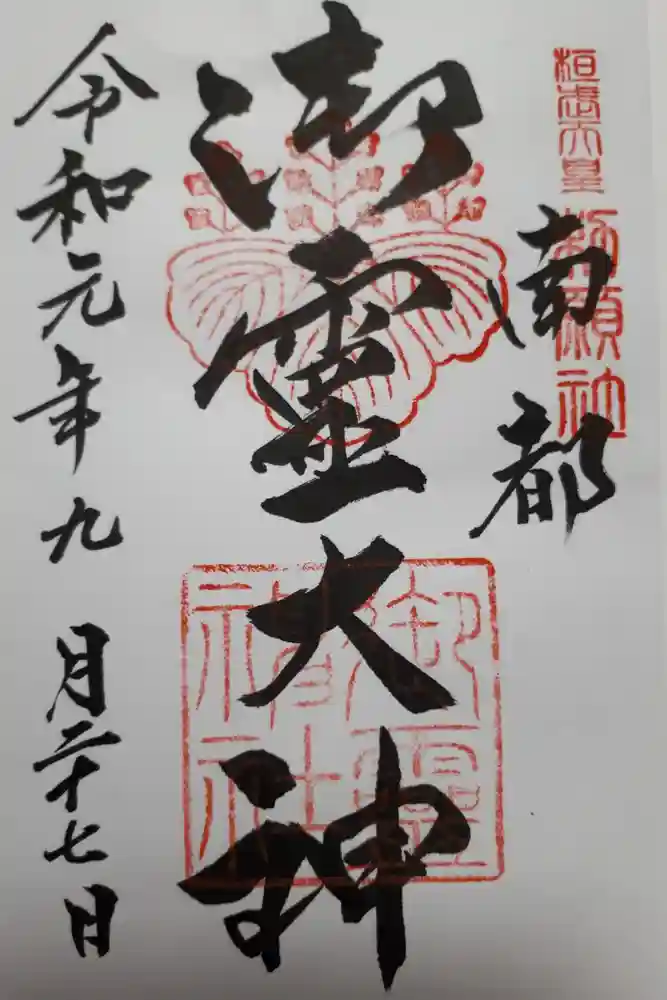 桓武天皇
勅願社
南都
御靈大神
御靈
神社
令和元年九月二十七日